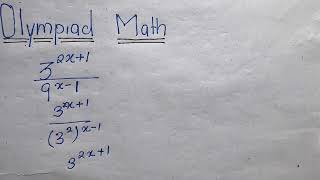 Olympiad Math
3^{2x+1}
9^{x-1}
3^{2x+1}
(3^2)^{x-1}
3^{2x+1}